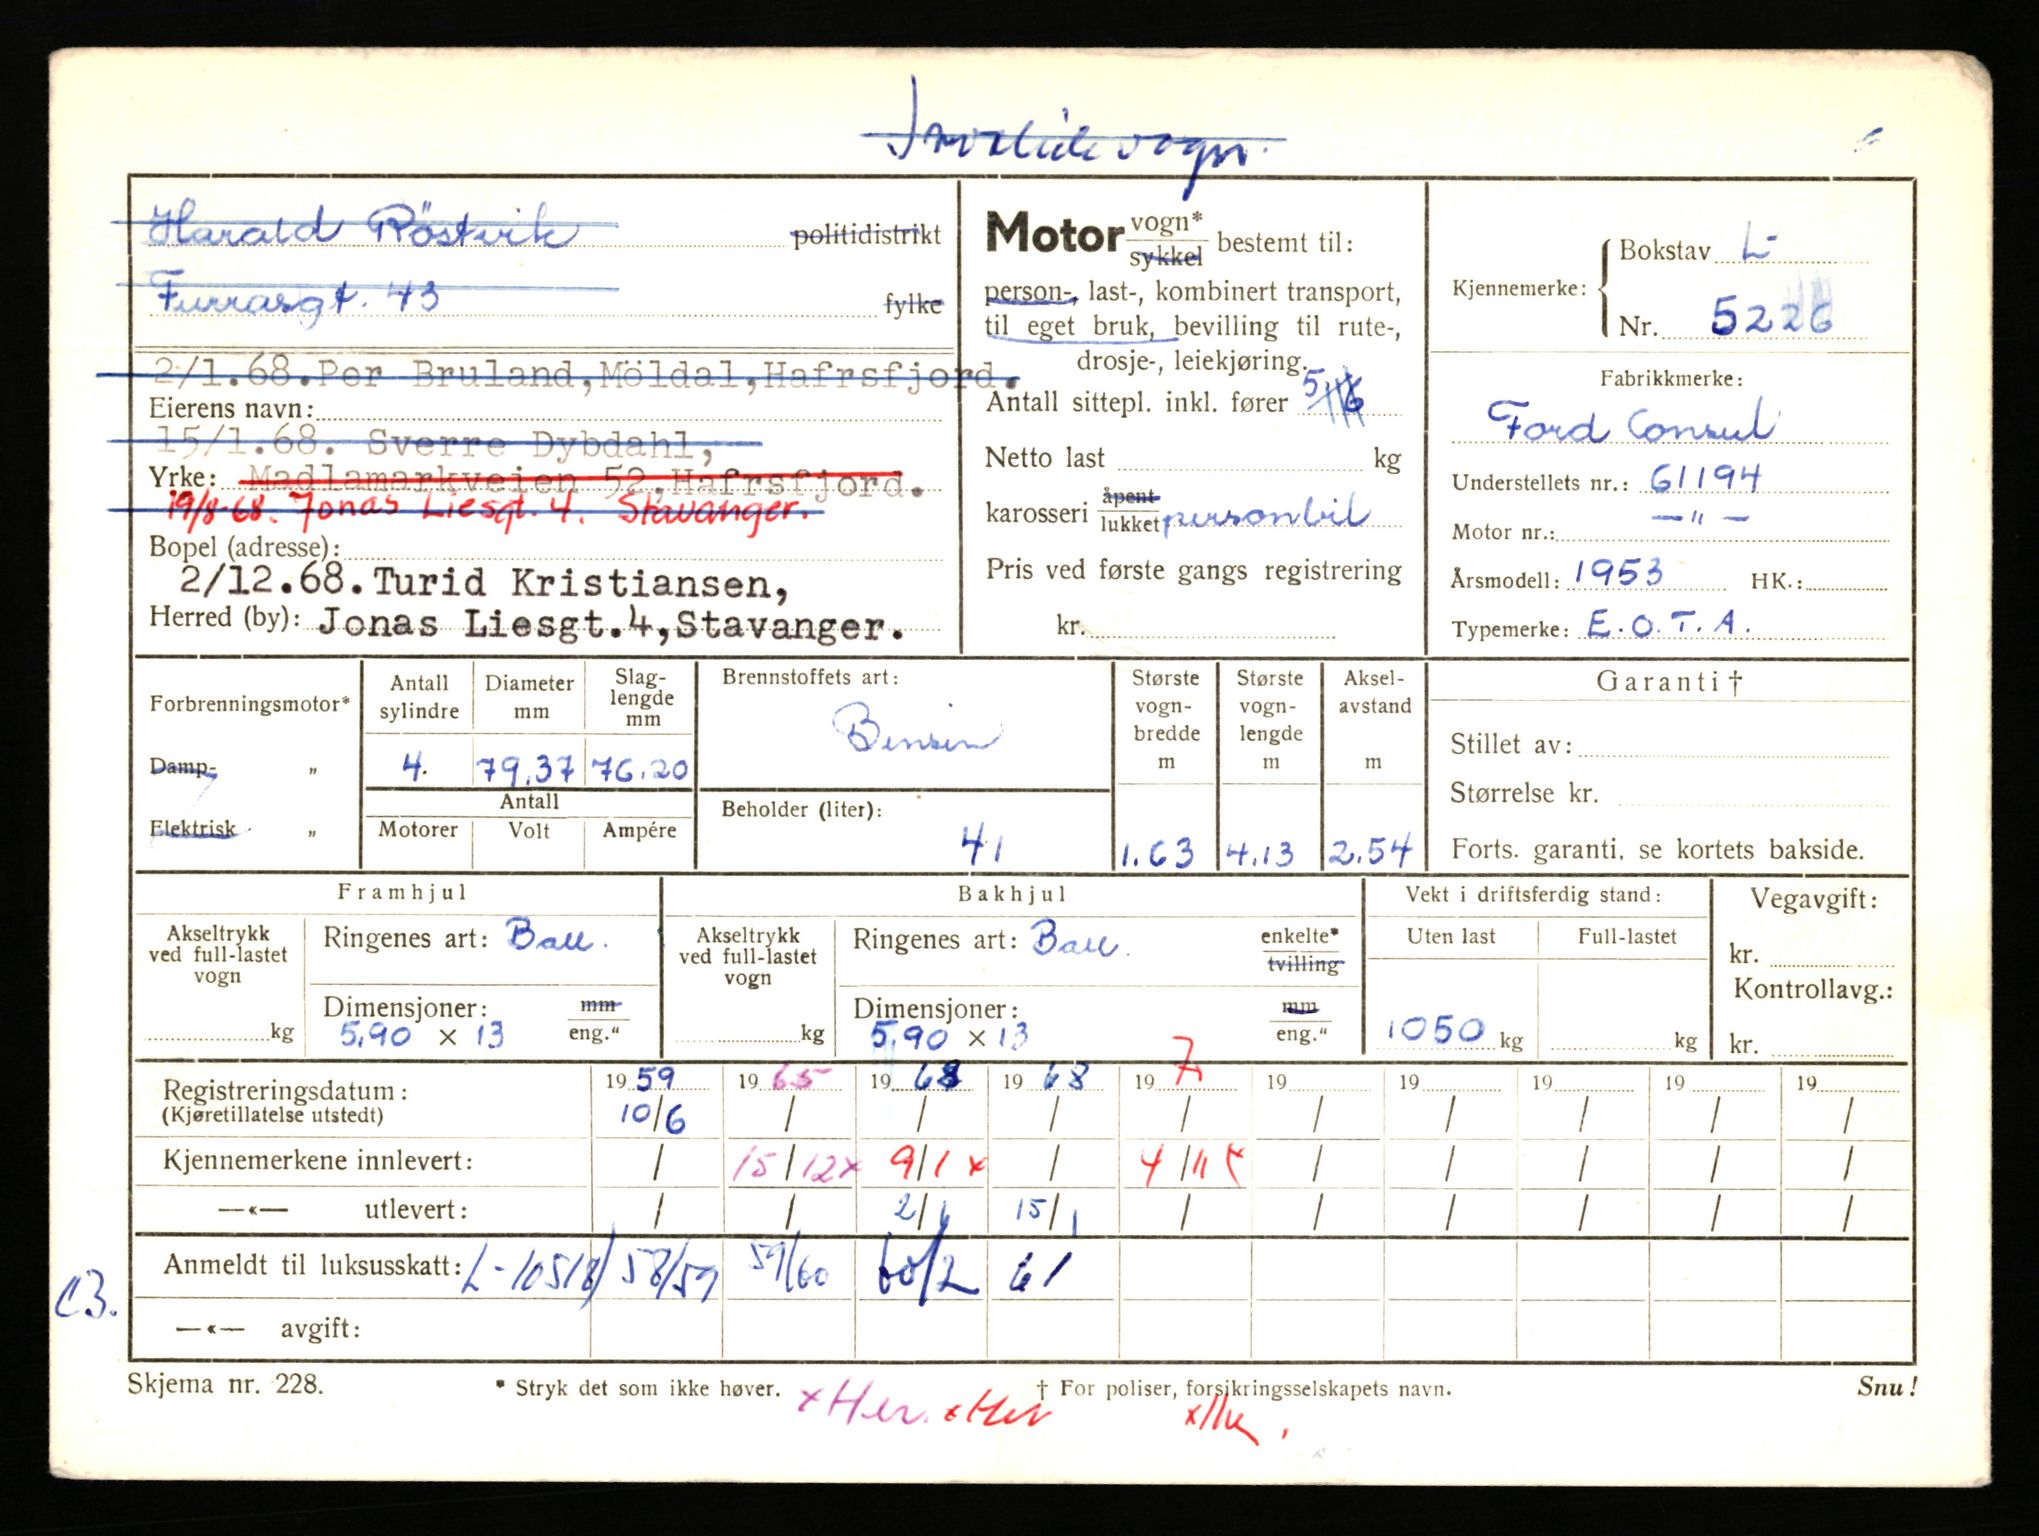 Invalidevogn.
Harald Röstvik politidistrikt
Furrasgt. 43 fylke
2/1.68. Per Bruland, Möldal, Hafrsfjord.
Eierens navn:
15/1.68. Sverre Dybdahl,
Yrke: Madlamarkveien 52, Hafrsfjord.
19/8-68. Jonas Liesgt. 4. Stavanger.
Bopel (adresse):
2/12.68. Turid Kristiansen,
Herred (by): Jonas Liesgt.4, Stavanger.
Motor vogn* sykkel bestemt til:
person-, last-, kombinert transport,
til eget bruk, bevilling til rute-,
drosje-, leiekjøring.
Antall sittepl. inkl. fører 5
Netto last kg
karosseri åpent lukket personbil
Pris ved første gangs registrering
kr.
Kjennemerke: Bokstav L-
Nr. 5226
Fabrikkmerke:
Ford Consul
Understellets nr.: 61194
Motor nr.: —"—
Årsmodell: 1953 HK.:
Typemerke: E.O.T.A.
Forbrenningsmotor*
Damp- "
Elektrisk "
Antall sylindre
4.
Diameter mm
79,37
Slag-lengde mm
76.20
Antall
Motorer Volt Ampére
Brennstoffets art:
Bensin
Beholder (liter):
41
Største vogn-bredde m
1.63
Største vogn-lengde m
4.13
Aksel-avstand m
2.54
Garanti †
Stillet av:
Størrelse kr.
Forts. garanti, se kortets bakside.
Framhjul
Akseltrykk ved full-lastet vogn
kg
Ringenes art: Ball.
Dimensjoner: mm
5,90 x 13 eng."
Bakhjul
Akseltrykk ved full-lastet vogn
kg
Ringenes art: Ball. enkelte* tvilling
Dimensjoner: mm
5,90 x 13 eng."
Vekt i driftsferdig stand:
Uten last Full-lastet
1050 kg kg
Vegavgift:
kr.
Kontrollavg.:
kr.
Registreringsdatum: 19 59 19 65 19 68 19 68 19 7 19 19 19 19 19
(Kjøretillatelse utstedt) 10/6 / / / / / / / / /
Kjennemerkene innlevert: / 15/12x 9/1 x / 4/11 x / / / / /
—«— utlevert: / / 2/1 15/1 / / / / / /
Anmeldt til luksusskatt: L-10518 58/59 59/60 60/2 61
C3.
—«— avgift:
Skjema nr. 228. * Stryk det som ikke høver. † For poliser, forsikringsselskapets navn. Snu!
x Her. x Her